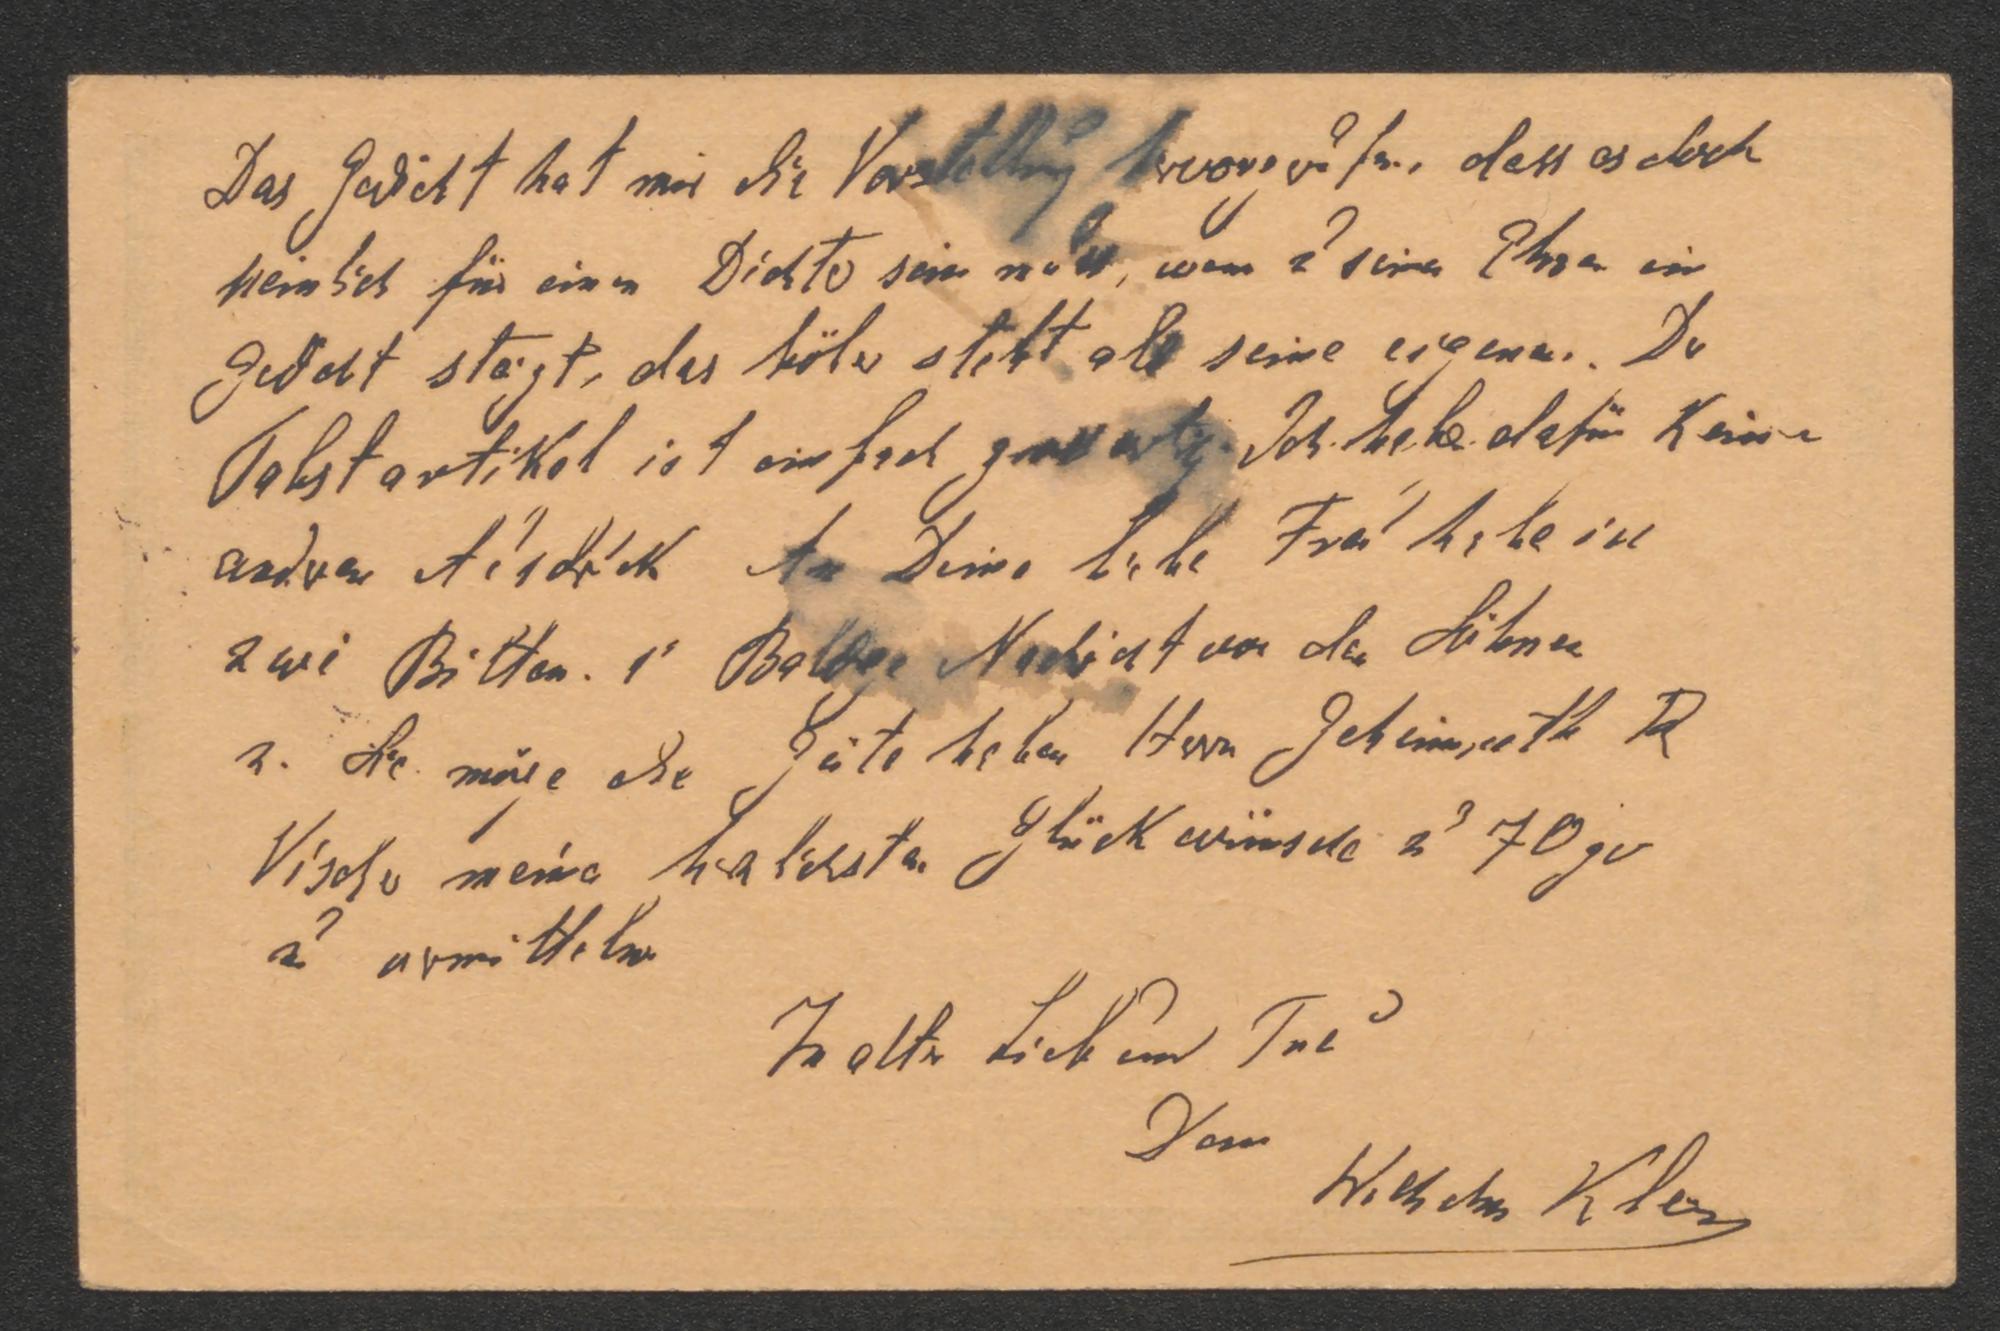 Das Gedicht hat mir die Vorstellung hervorgerufen, dass es doch
peinlich für einen Dichter sein muss, wenn zu seinen Ehren ein
Gedicht steigt, das höher steht als seine eigenen. Der
Pabstartikel ist einfach grossartig. Ich habe dafür keinen
anderen Ausdruck An Deine liebe Frau habe ich
zwei Bitten. 1' Baldige Nachricht von den Söhnen
2. Sie möge die Güte haben Herrn Geheimrath
Vischer meine herzlichsten Glückwünsche zu 70ger
zu vermitteln
In alter Lieb und Treu
Dein
Wilhelm Klein